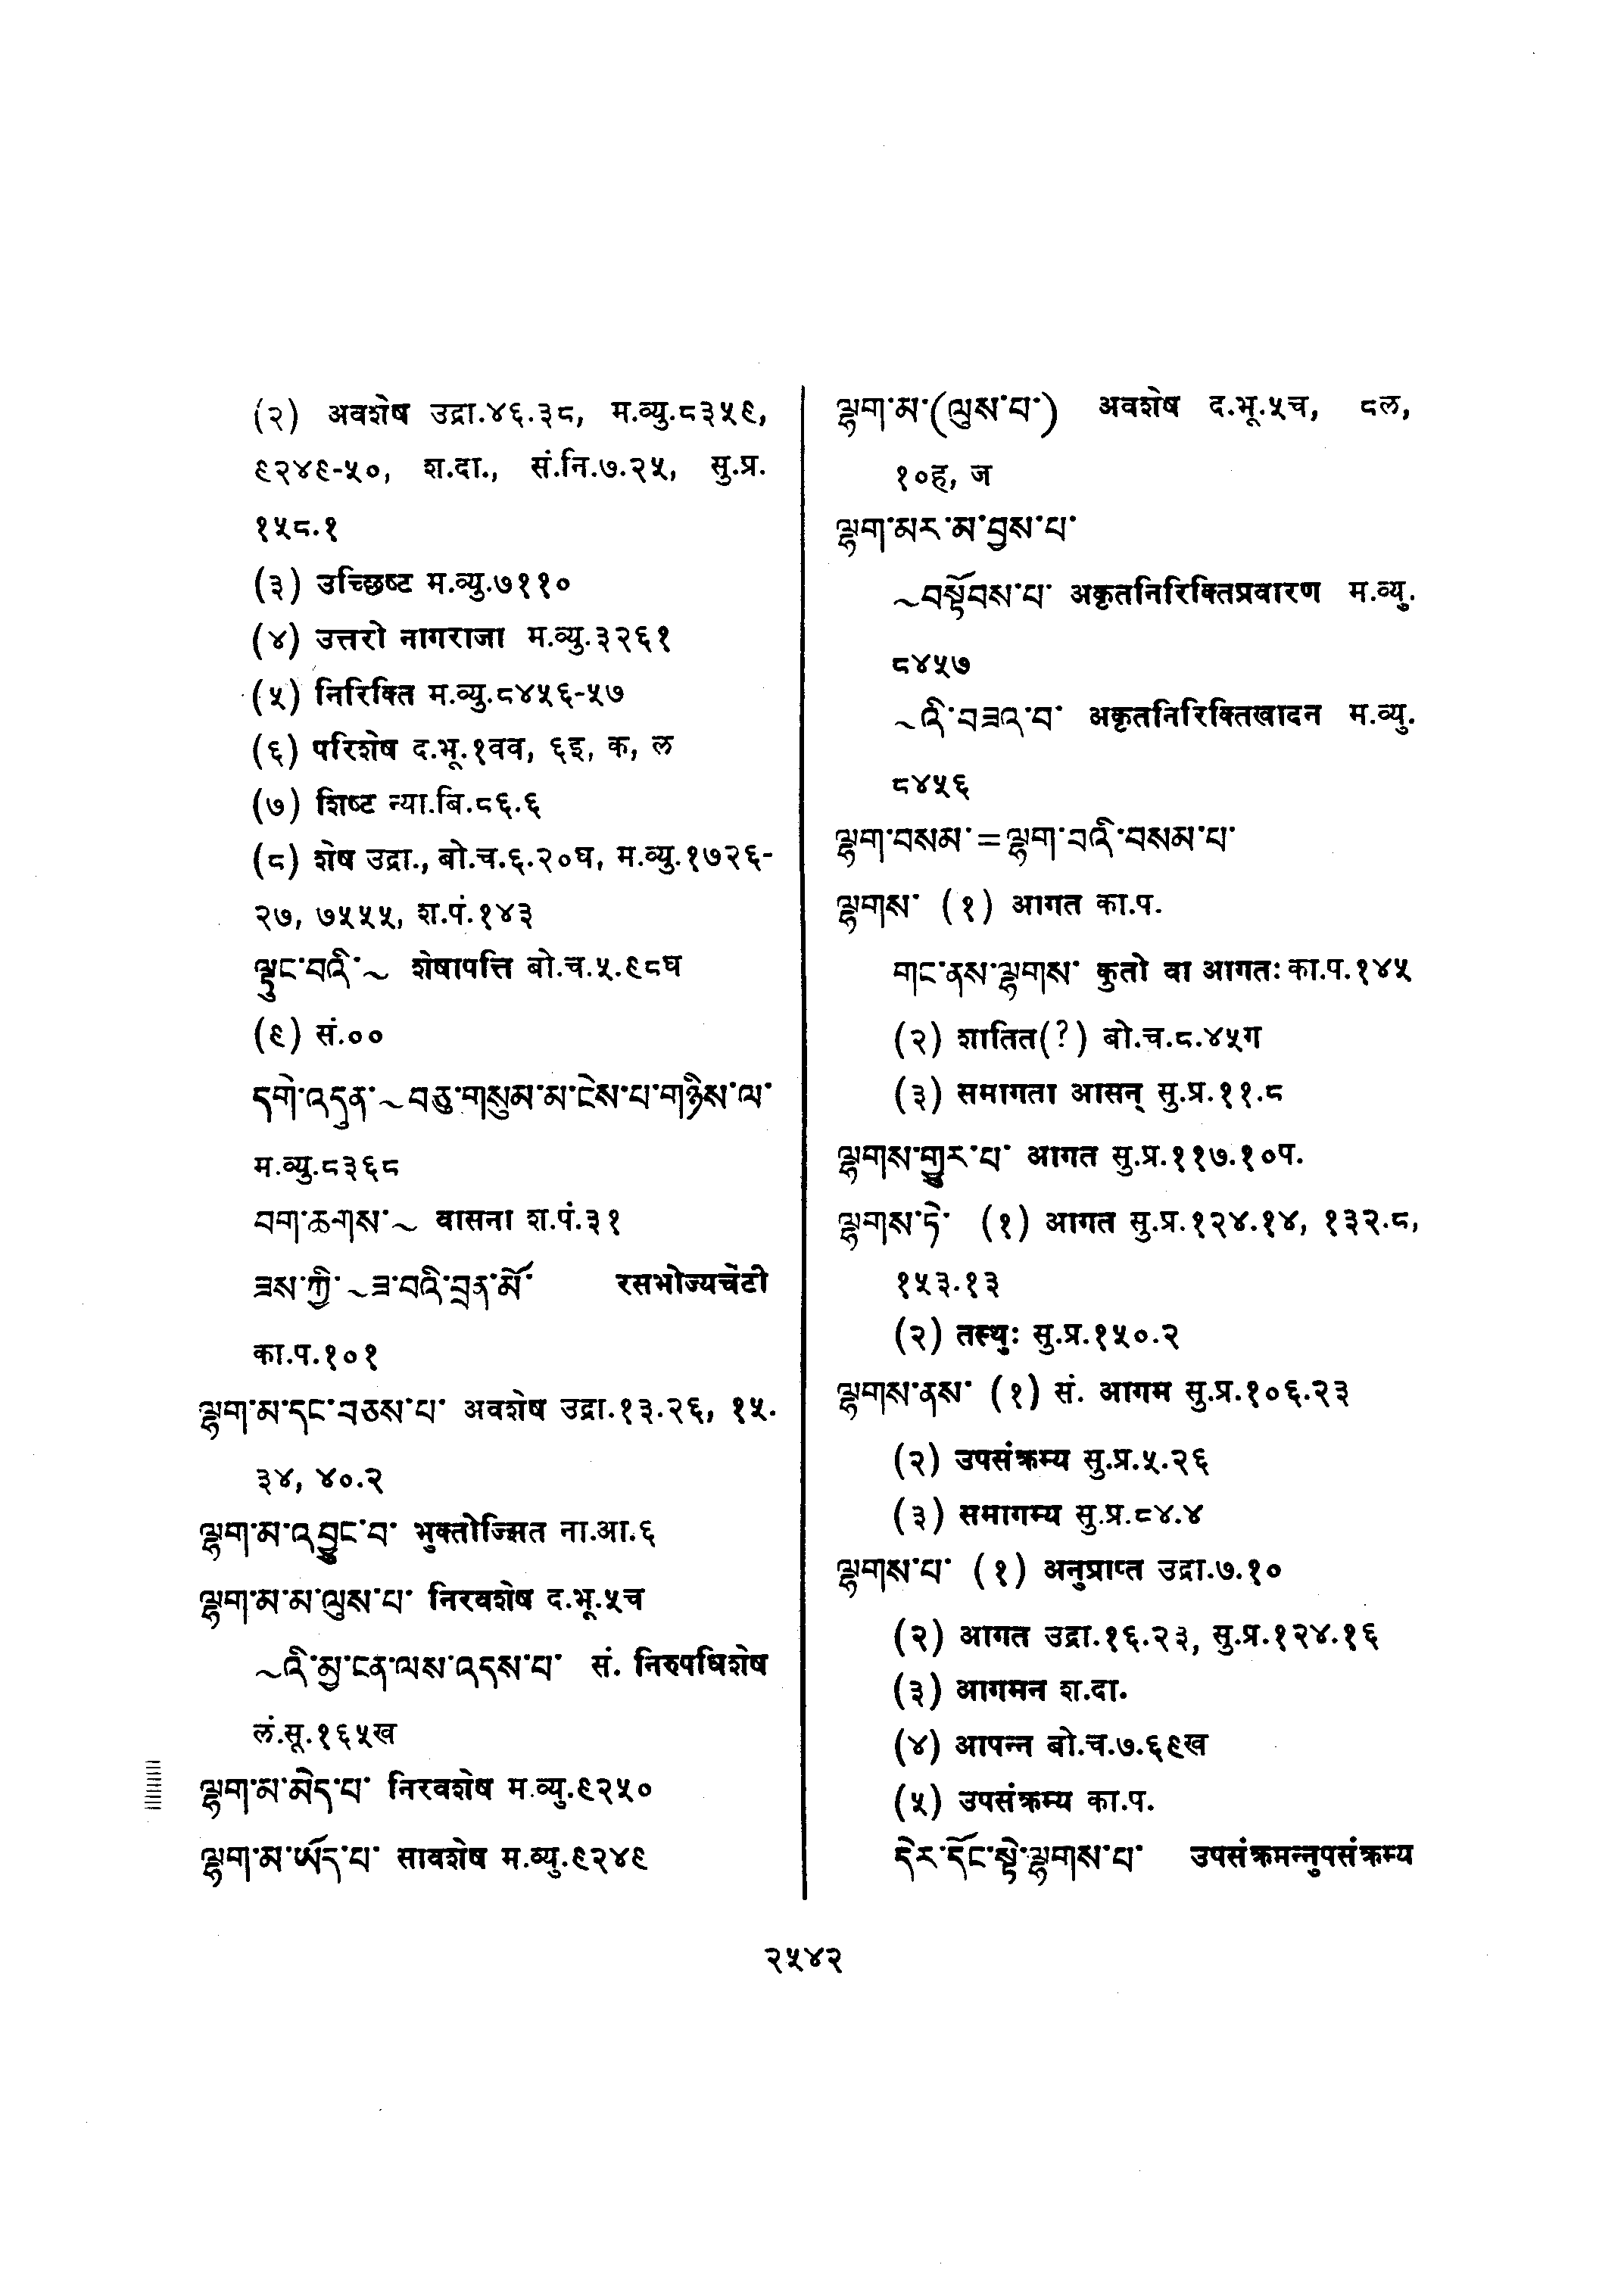 (२) अवशेष उद्रा.४६.३८, म.व्यु.८३५९,
९२४९-५०, श.दा., सं.नि.७.२५, सु.प्र.
१५८.१
(३) उच्छिष्ट म.व्यु.७११०
(४) उत्तरो नागराजा म.व्यु.३२६१
(५) निरिक्ति म.व्यु.८४५६-५७
(६) परिशेष द.भू.१वव, ६इ, क, ल
(७) शिष्ट न्या.बि.८६.६
(८) शेष उद्रा., बो.च.६.२०घ, म.व्यु.१७२६-
२७, ७५५५, श.पं.१४३
ལྟུང་བའི་~ शेषापत्ति बो.च.५.९८घ
(९) सं.००
དགེ་འདུན་~བཅུ་གསུམ་མ་ངེས་པ་གཉིས་ལ་
म.व्यु.८३६८
བག་ཆགས་~ वासना श.पं.३१
ཟས་ཀྱི་~ཟ་བའི་བྲན་མོ་ रसभोज्यचेटी
का.प.१०१
ལྷག་མ་དང་བཅས་པ་ अवशेष उद्रा.१३.२६, १५.
३४, ४०.२
ལྷག་མ་འབྱུང་བ་ भुक्तोज्झित ना.आ.६
ལྷག་མ་མ་ལུས་པ་ निरवशेष द.भू.५च
~འི་མྱ་ངན་ལས་འདས་པ་ सं. निरुपधिशेष
लं.सू.१६५ख
ལྷག་མ་མེད་པ་ निरवशेष म.व्यु.९२५०
ལྷག་མ་ཡོད་པ་ सावशेष म.व्यु.९२४९
ལྷག་མ་(ལུས་པ་) अवशेष द.भू.५च, ८ल,
१०ह, ज
ལྷག་མར་མ་བྱས་པ་
~བསྟོབས་པ་ अकृतनिरिक्तिप्रवारण म.व्यु.
८४५७
~འི་བཟའ་བ་ अकृतनिरिक्तिखादन म.व्यु.
८४५६
ལྷག་བསམ་=ལྷག་བའི་བསམ་པ་
ལྷགས་ (१) आगत का.प.
གང་ནས་ལྷགས་ कुतो वा आगतः का.प.१४५
(२) शातित(?) बो.च.८.४५ग
(३) समागता आसन् सु.प्र.११.८
ལྷགས་གྱུར་པ་ आगत सु.प्र.११७.१०प.
ལྷགས་ཏེ་ (१) आगत सु.प्र.१२४.१४, १३२.८,
१५३.१३
(२) तस्थुः सु.प्र.१५०.२
ལྷགས་ནས་ (१) सं. आगम सु.प्र.१०६.२३
(२) उपसंक्रम्य सु.प्र.५.२६
(३) समागम्य सु.प्र.८४.४
ལྷགས་པ་ (१) अनुप्राप्त उद्रा.७.१०
(२) आगत उद्रा.१६.२३, सु.प्र.१२४.१६
(३) आगमन श.दा.
(४) आपन्न बो.च.७.६९ख
(५) उपसंक्रम्य का.प.
དེར་དོང་སྟེ་ལྷགས་པ་ उपसंक्रमन्नुपसंक्रम्य
२५४२